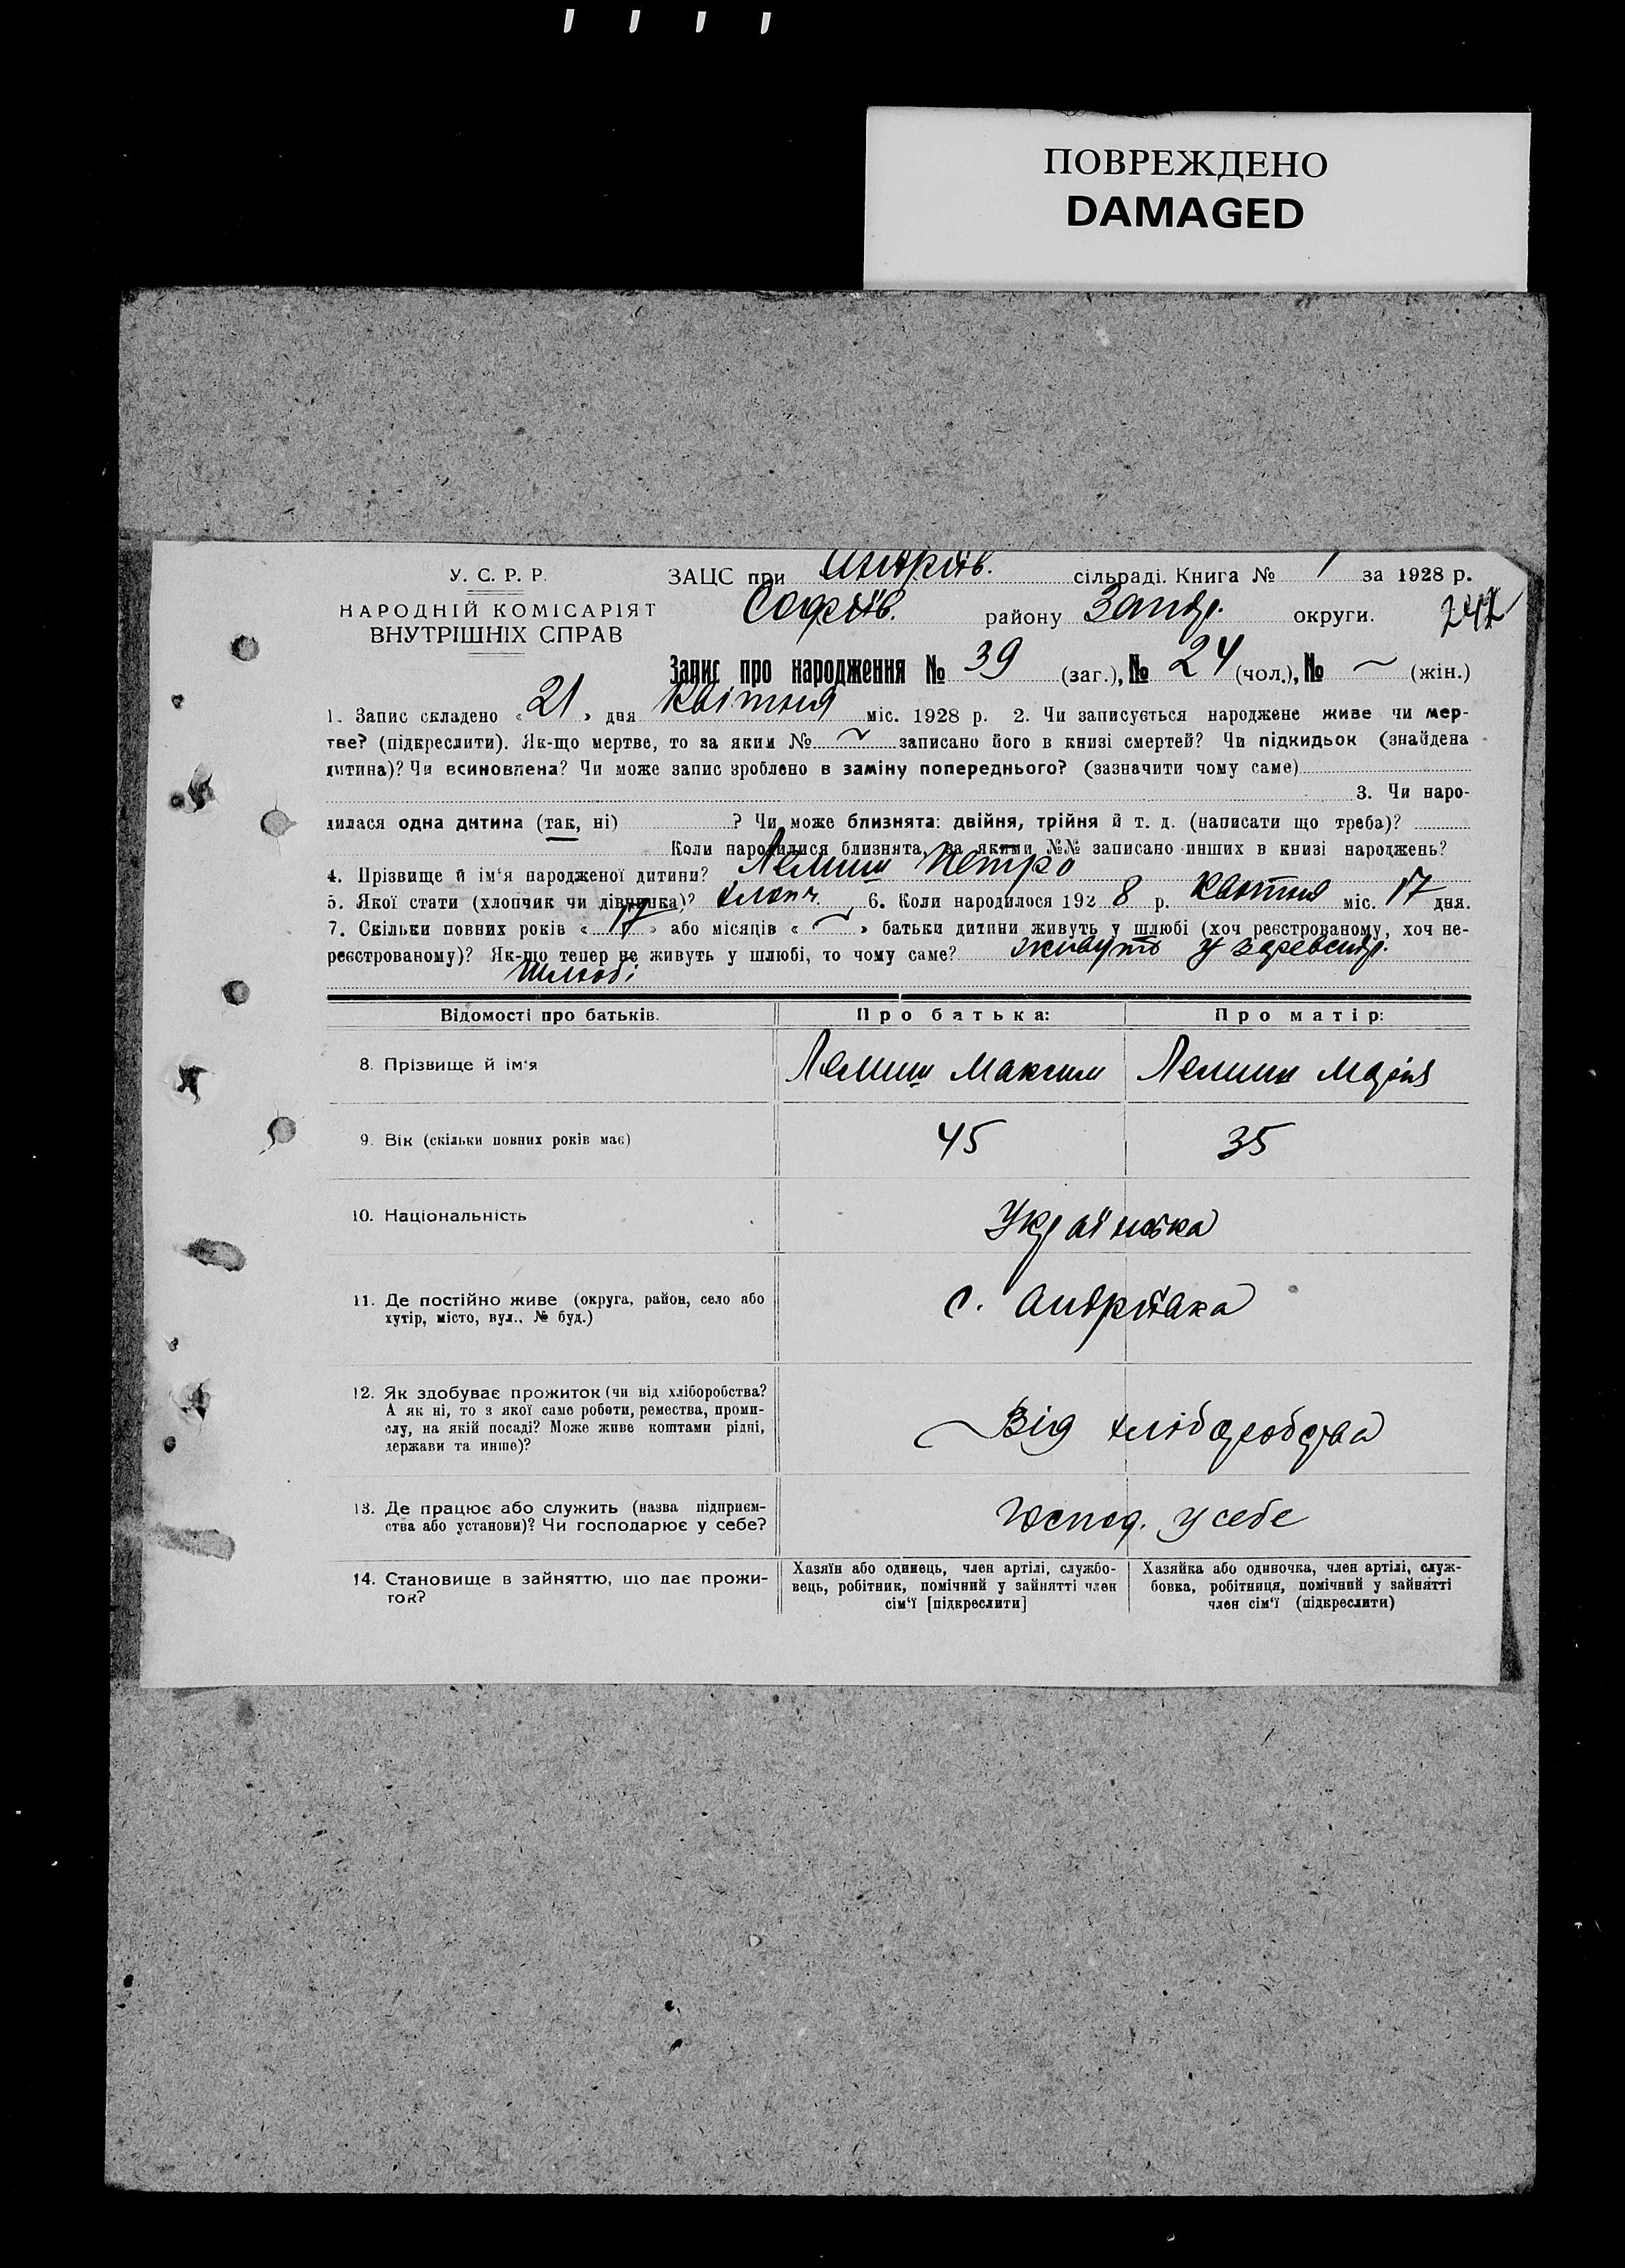 ПОВРЕЖДЕНО
DAMAGED
У. С. Р. Р.
НАРОДНІЙ КОМІСАРІЯТ
ВНУТРІШНІХ СПРАВ
ЗАЦС при Андріїв. сільраді. Книга № 1 за 1928 р.
Софіїв. району Запор. округи. 242
Запис про народження № 39 (заг.), № 24 (чол.), № ~ (жін.)
1. Запис складено «21» дня Квітня міс. 1928 р. 2. Чи записується народжене живе чи мер-
тве? (підкреслити). Як-що мертве, то за яким № ~ записано його в книзі смертей? Чи підкидьок (знайдена
дитина)? Чи всиновлена? Чи може запис зроблено в заміну попереднього? (зазначити чому саме)
3. Чи наро-
дилася одна дитина (так, ні) ? Чи може близнята: двійня, трійня й т. д. (написати що треба)?
Коли народилися близнята, за якими №№ записано инших в книзі народжень?
4. Прізвище й ім‘я народженої дитини? Лемиш Петро
5. Якої стати (хлопчик чи дівчинка)? хлопч. 6. Коли народилося 1928 р. Квітня міс. 17 дня.
7. Скільки повних років «17» або місяців «~» батьки дитини живуть у шлюбі (хоч реєстрованому, хоч не-
реєстрованому)? Як-що тепер не живуть у шлюбі, то чому саме? живуть у
шлюбі
Відомості про батьків. Про батька: Про матір:
8. Прізвище й ім‘я Лемиш Максим Лемиш Марія
9. Вік (скільки повних років має) 45 35
10. Національність Українська
11. Де постійно живе (округа, район, село або
хутір, місто, вул., № буд.) с. Андріївка
12. Як здобуває прожиток (чи від хліборобства?
А як ні, то з якої саме роботи, ремества, проми-
слу, на якій посаді? Може живе коштами рідні,
держави та инше)? Від хліборобства
13. Де працює або служить (назва підприєм-
ства або установи)? Чи господарює у себе? Господ. у себе
14. Становище в зайняттю, що дає прожи-
ток?
Хазяїн або одинець, член артілі, службо-
вець, робітник, помічний у зайнятті член
сім‘ї [підкреслити]
Хазяйка або одиночка, член артілі, служ-
бовка, робітниця, помічний у зайнятті
член сім‘ї (підкреслити)